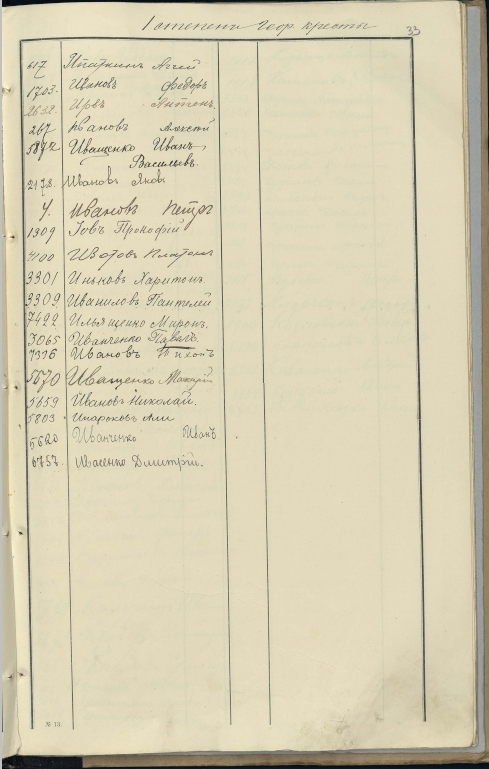 1 степени Геор. кресты
33
617 Ипаткинъ Агей
1703. Ивановъ Федоръ
2632. Антонъ
267 Ивановъ Алексей
5872 Иващенко Иванъ
Васильевъ.
2178. Ивановъ Яковъ
4. Ивановъ Петръ
1309 Іовъ Прокофій
4100 Изотовъ Платонъ
3301 Иньковъ Харитонъ
3309 Иваниловъ Пантелей
7422 Ильященко Миронъ.
3065 Иванченко Павелъ.
7376 Ивановъ Тихонъ
5670 Иващенко
5659 Ивановъ Николай.
5803 Инароковъ Али
5620 Иванченко Иванъ
6757. Ивасенко Дмитрій.
№ 13.